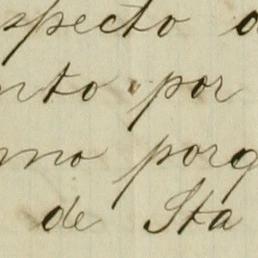 specto d
nto por
mo porq
de Sta